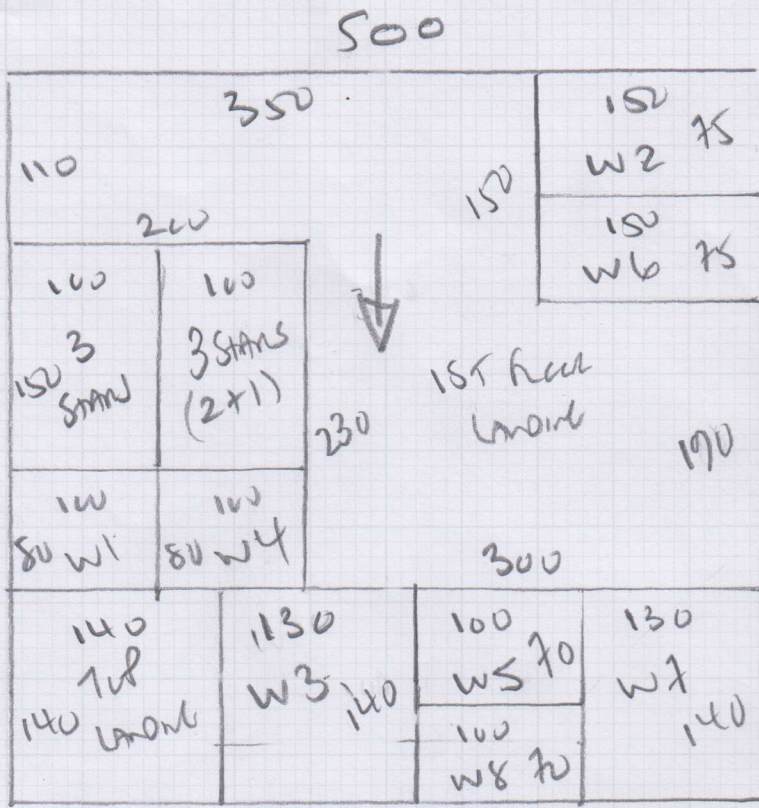 500
350
110
150
W2 75
150
150
W6 75
200
100
3
STAIRS
150
100
3 STAIRS
(2+1)
230
1ST FLOOR
LANDING
190
100
80 W1
100
80 W4
300
140
TOP
140 LANDING
130
W3 140
100
W5 70
100
W8 70
130
W7
140